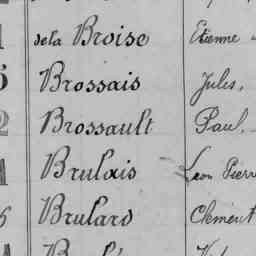 de la Broise Etienne
Brossais Jules,
Brossault Paul,
Brulais Leon Pierre
Brulard Clément